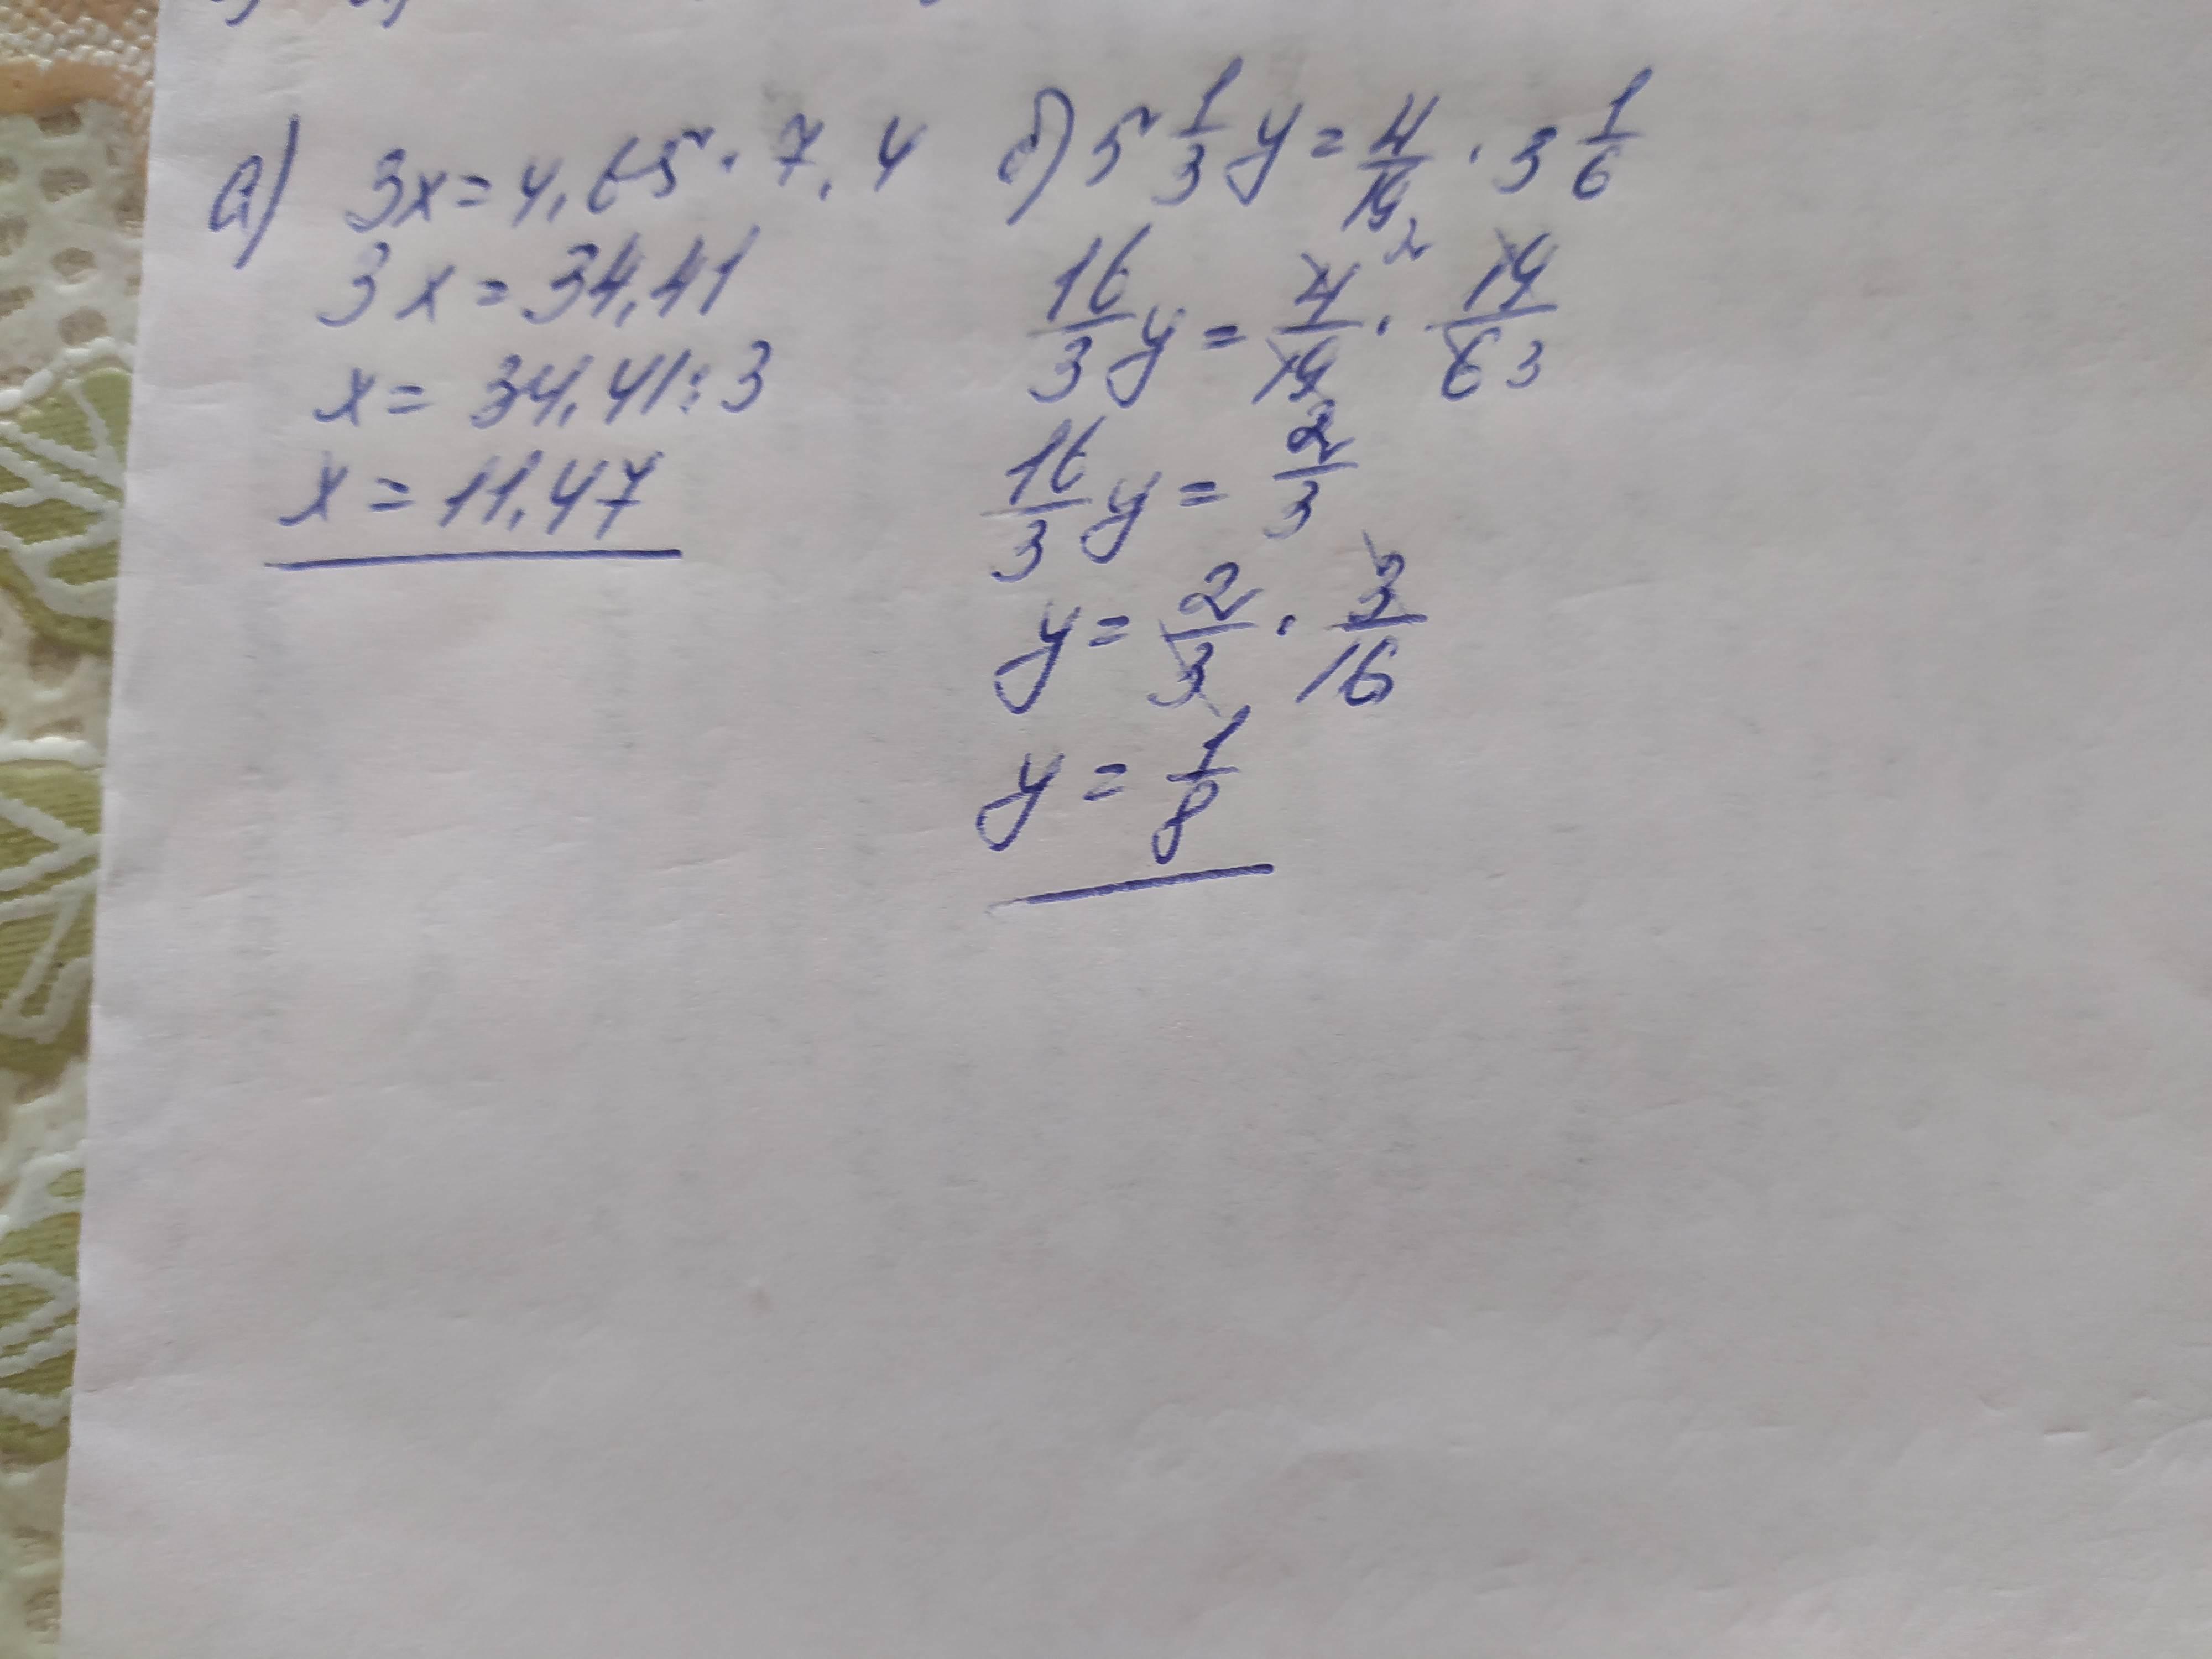 а) 3x = 4,65 · 7,4
3x = 34,41
x = 34,41 : 3
x = 11,47
б) 5 1/3 y = 4/19 · 3 1/6
16/3 y = 4/19 2 · 19/6 3
16/3 y = 2/3
y = 2/3 · 3/16
y = 1/8